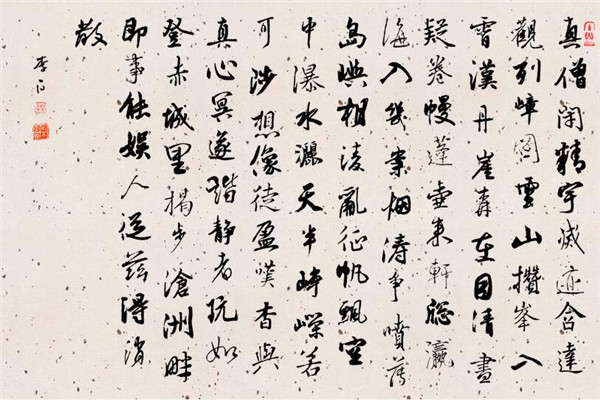 真僧閉精宇滅迹含達
觀列嶂圖雲山攢峯入
霄漢丹崖森在目清晝
疑卷幔蓬壺來軒窗瀛
海入幾案烟濤爭噴薄
島嶼相凌亂征帆飄空
中瀑水灑天半崢嶸若
可陟想像徒盈嘆杳與
真心冥遂諧靜者玩如
登赤城里揭步滄洲畔
即事能娛人從茲得消
散
李白